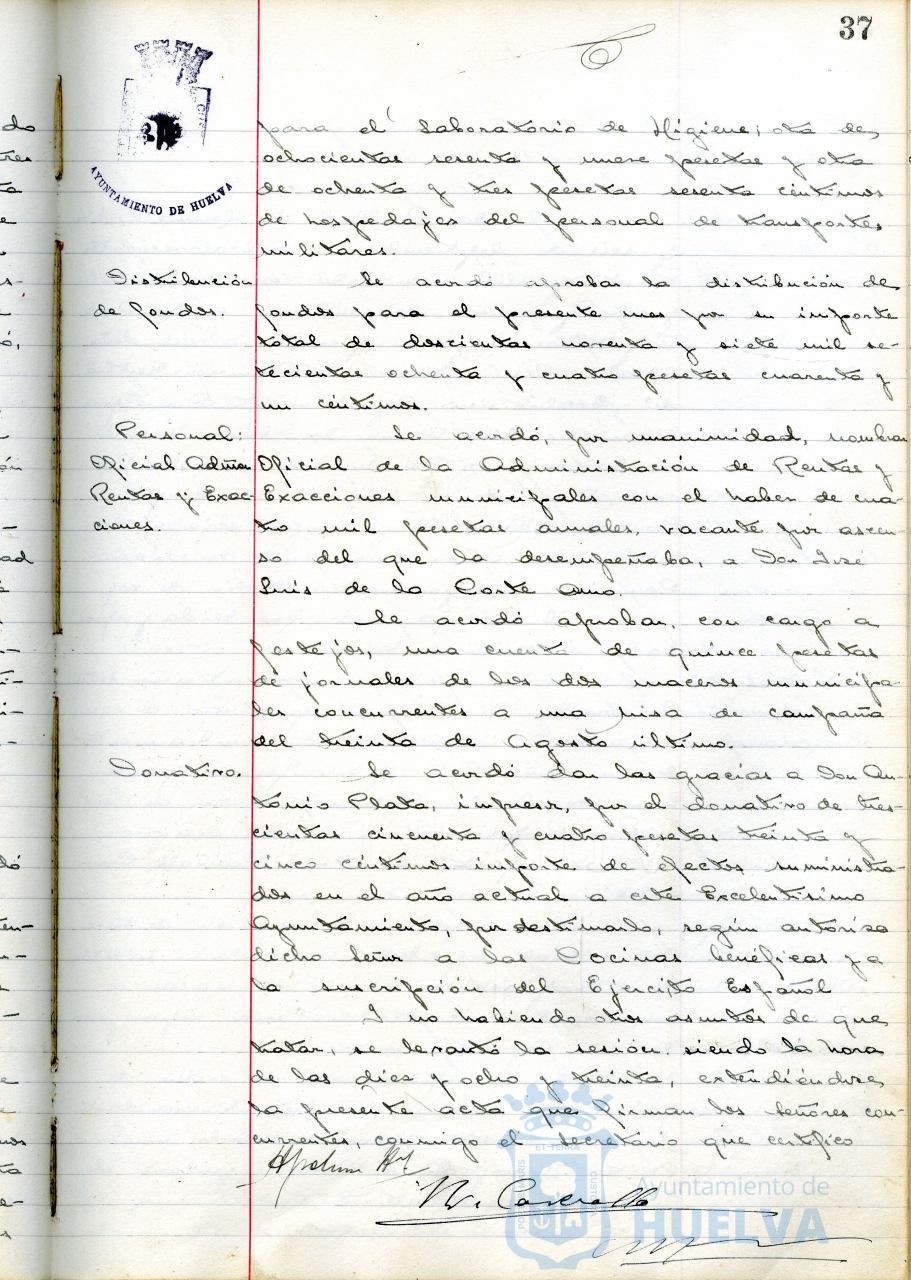 37
AYUNTAMIENTO DE HUELVA
para el Laboratorio de Higiene; otra de
ochocientas sesenta y nueve pesetas y otra
de ochenta y tres pesetas sesenta céntimos
de hospedajes del personal de transportes
militares.
Distribución
de fondos.
Se acordó aprobar la distribución de
fondos para el presente mes por su importe
total de doscientas noventa y siete mil se-
tecientas ochenta y cuatro pesetas cuarenta y
un céntimos.
Personal:
Oficial Admon
Rentas y Exac-
ciones.
Se acordó, por unanimidad, nombrar
Oficial de la Administración de Rentas y
Exacciones municipales con el haber de cua-
tro mil pesetas anuales, vacante por ascen-
so del que la desempeñaba, a Don José
Luis de la Corte
Se acordó aprobar, con cargo a
festejos, una cuenta de quince pesetas
de jornales de los dos maceros municipa-
les concurrentes a una misa de campaña
del treinta de Agosto último.
Donativo.
Se acordó dar las gracias a Don An-
tonio Plata, impresor, por el donativo de tres-
cientas cincuenta y cuatro pesetas treinta y
cinco céntimos importe de efectos suministra-
dos en el año actual a este Excelentísimo
Ayuntamiento, por destinarlo, según autoriza
dicho Señor a las Cocinas benéficas y a
la suscripción del Ejercito Español
I no habiendo otros asuntos de que
tratar, se levantó la sesión, siendo la hora
de las diez y ocho y treinta, extendiéndose
la presente acta que firman los Señores con-
currentes, conmigo el Secretario que certifico
Ayuntamiento de
HUELVA